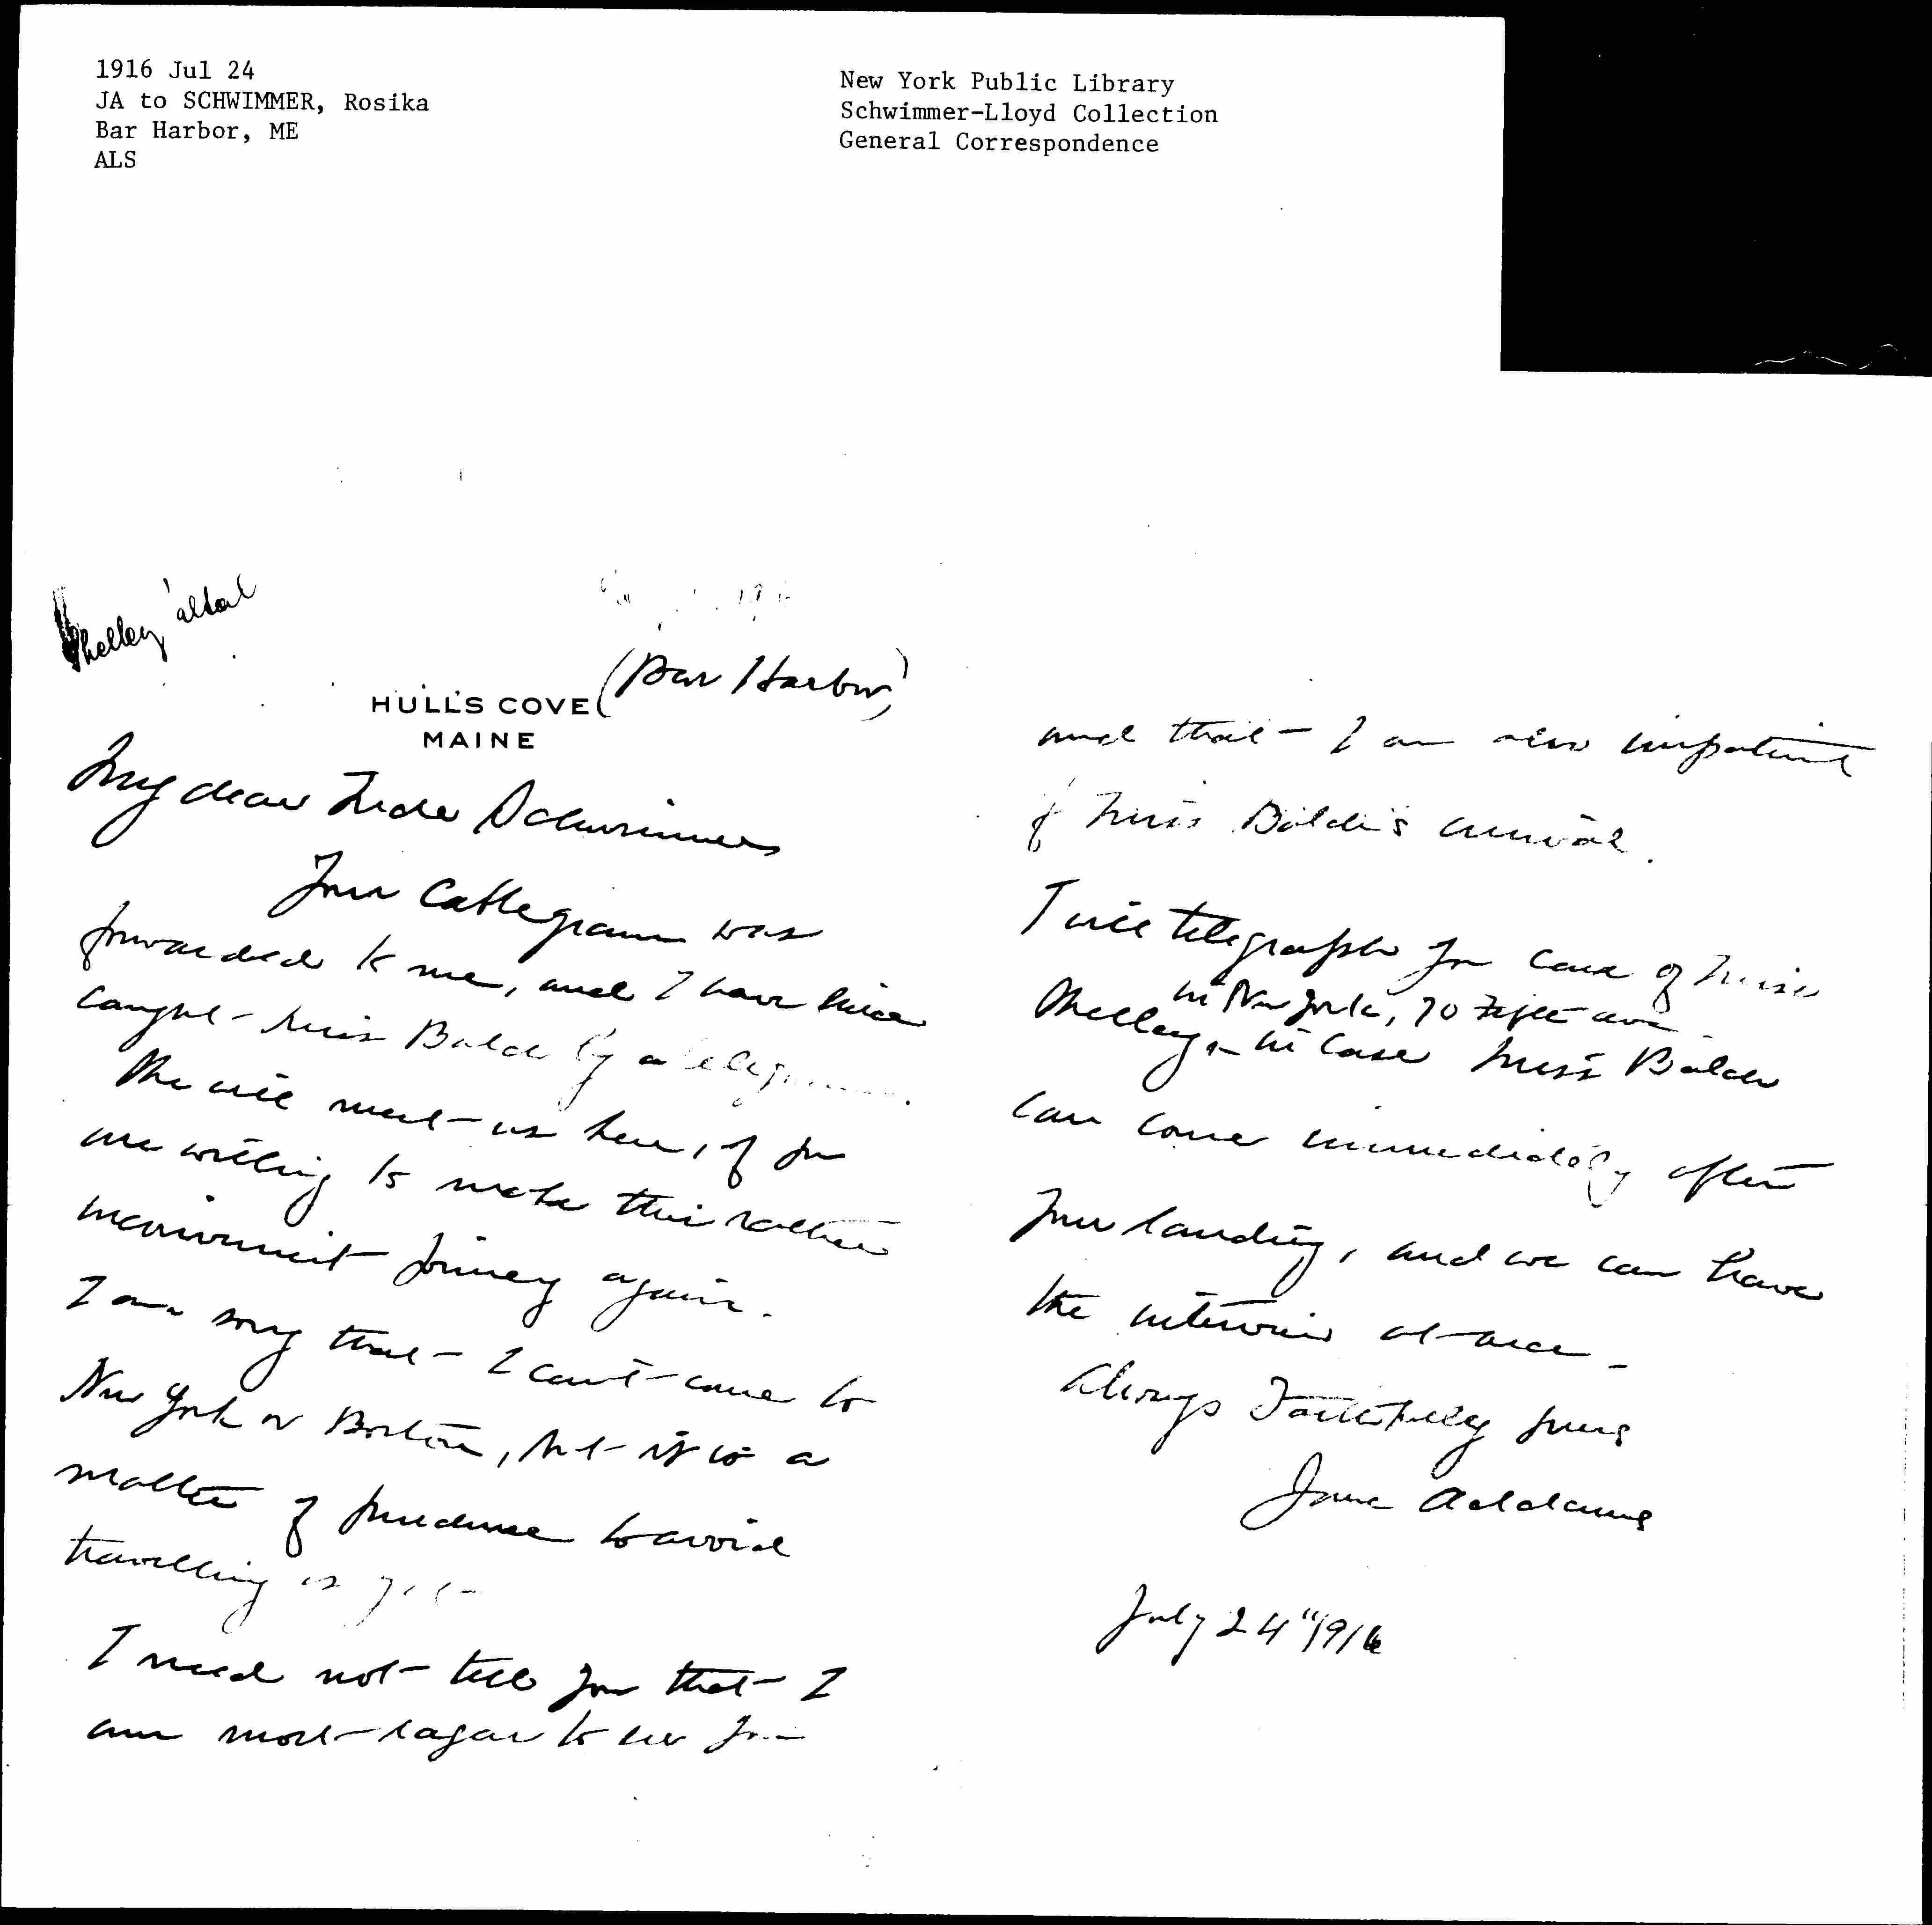 1916 Jul 24
JA to SCHWIMMER, Rosika
Bar Harbor, ME
ALS
New York Public Library
Schwimmer-Lloyd Collection
General Correspondence
Shelley
HULL'S COVE (Bar Harbor)
MAINE
My dear Mde Schwimmer
Your Cablegram was
forwarded to me, and I have since
caught Miss Balch by a telegram.
She will meet us here, if you
are willing to make this rather
inconvenient journey again.
I am sorry that I can't come to
New York or Boston, but it is a
matter of prudence to avoid
travelling as yet
I need not tell you that I
am most eager to see you
and that I am also impatient
of Miss Balch's arrival.
I will telegraph you care of Miss
in New York, 70 Fifth ave
Shelley in case Miss Balch
can come immediately after
your landing, and we can have
the interview at once -
Always Faithfully yours
Jane Addams
July 24" 1916